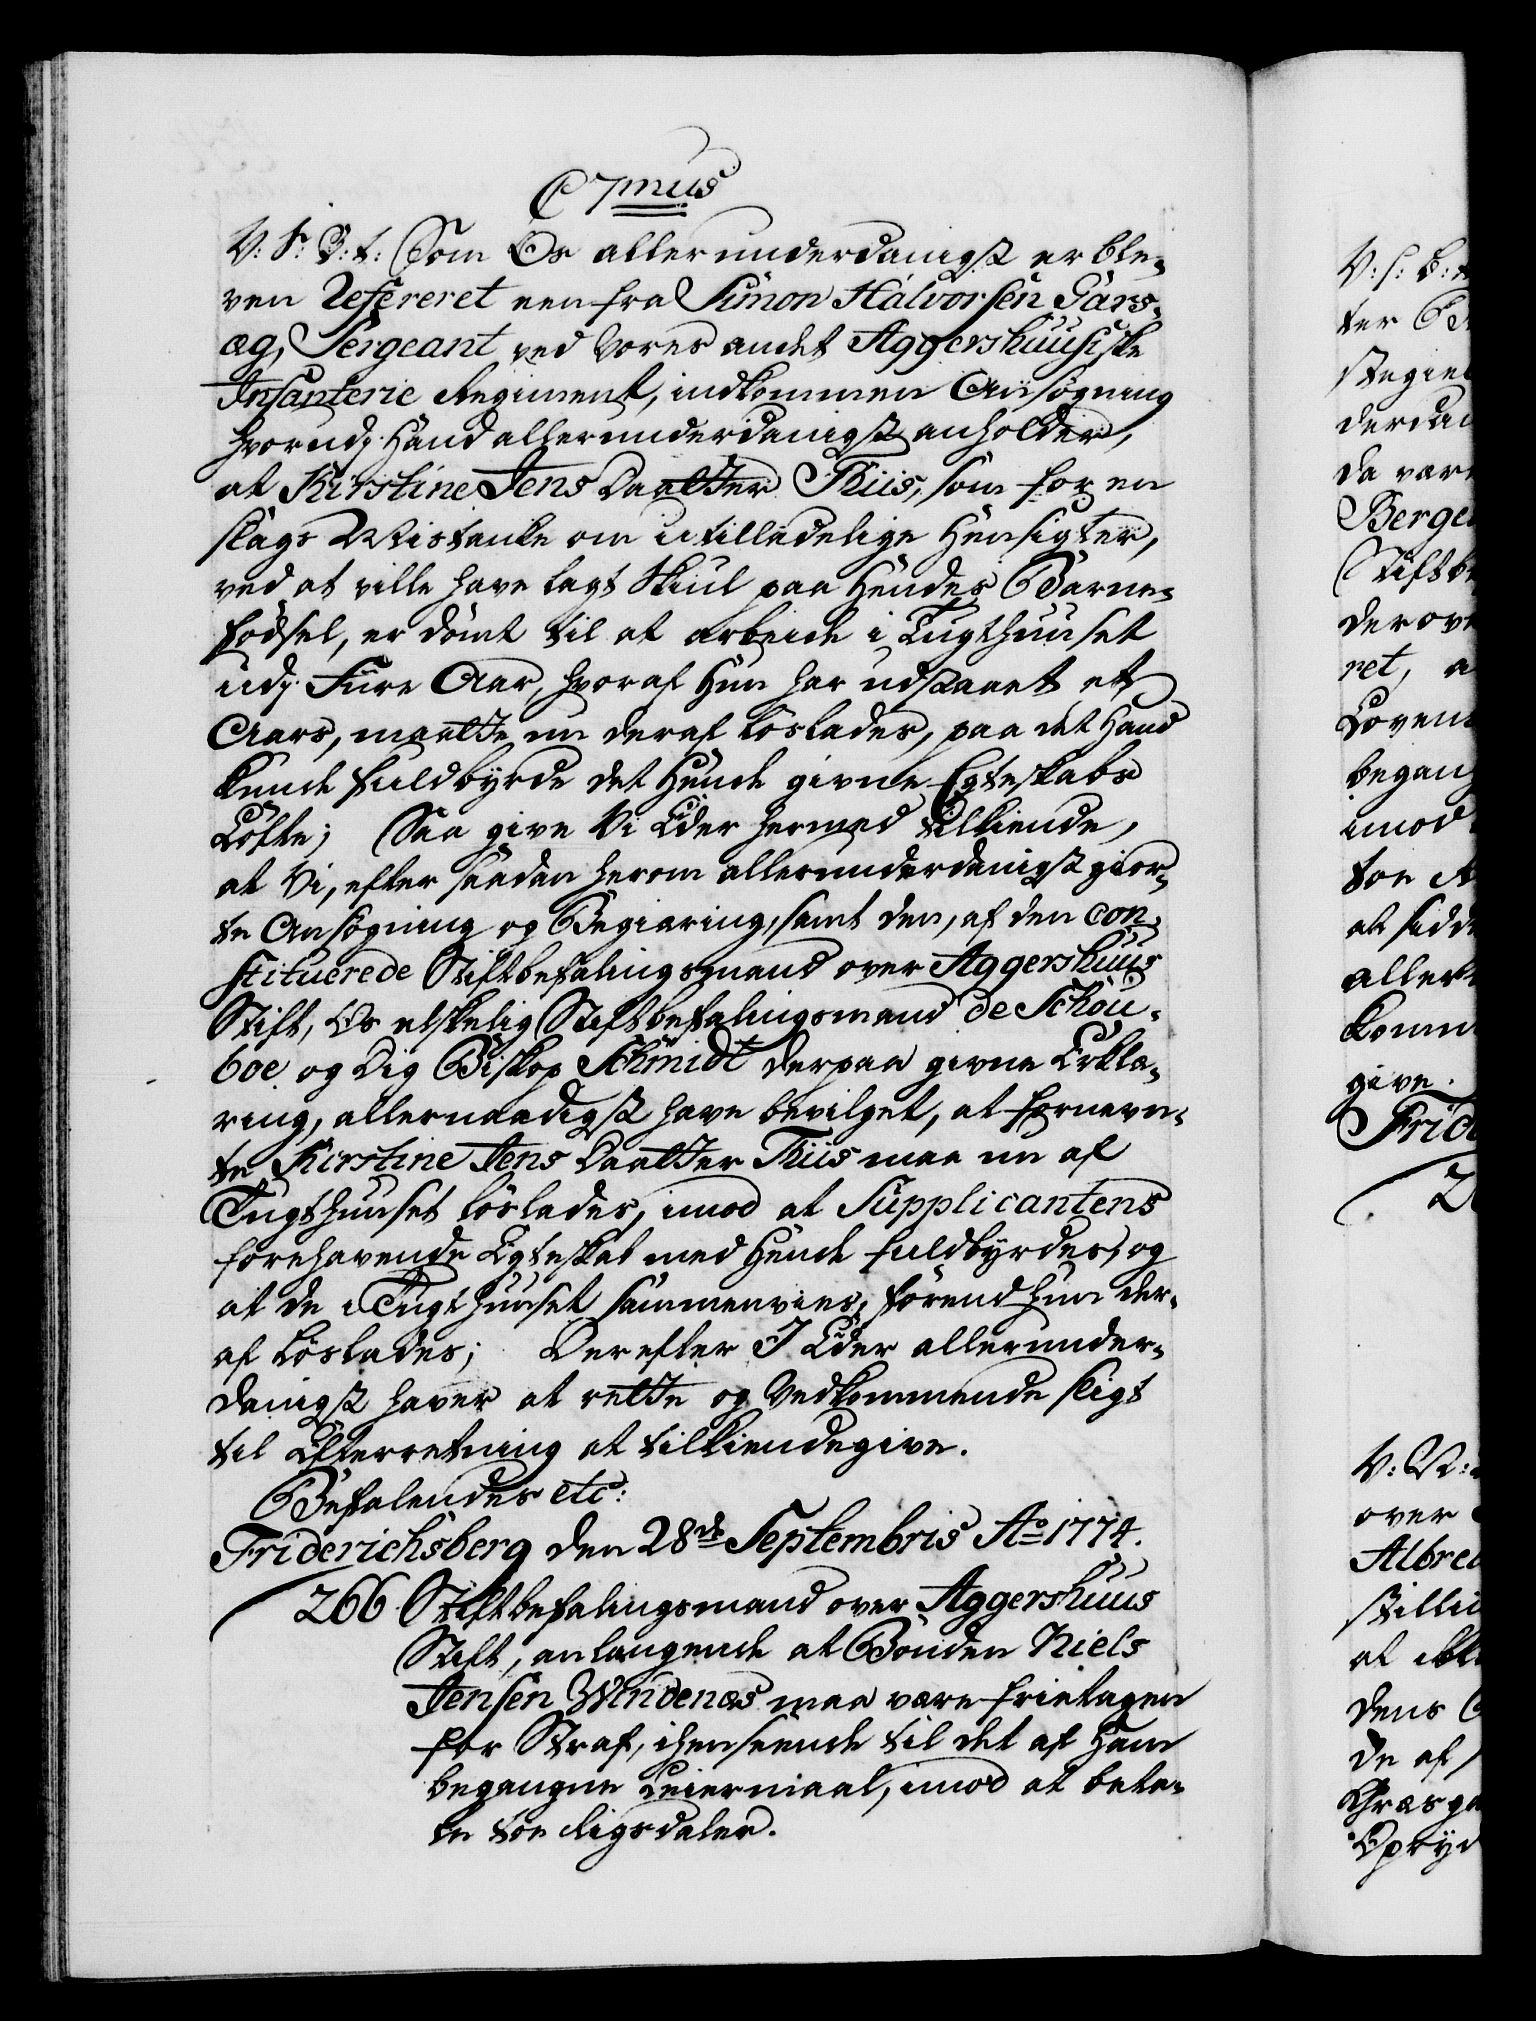 C 7mus
V: S: B: t: Som Os allerunderdanigst er ble-
ven Refereret een fra Simon Halvorsen Gars-
æg, Sergeant ved Vores andet Aggershuusiske
Infanterie Regiment, indkommen Ansøgning
hvorudj Hand allerunderdanigst anholder,
at Kirstine Jens Daatter Thiis, som for en
slags Mistanke om utilladelige Hensigter,
ved at ville have lagt Skiul paa Hendes Barne-
fødsel, er dømt til at arbeide i Tugthuuset
udj Fiire Aar, hvoraf Hun har udstaaet et
Aars, maatte nu deraf løslades, paa det Hand
kunde fuldbyrde det Hende givne Egteskabs
Løfte; Saa give Vi Eder hermed tilkiende,
at Vi, efter saadan herom allerunderdanigst gior-
te Ansøgning og Begiæring, samt den, af den con-
stituerede Stiftbefalingsmand over Aggershuus
Stift, Os elskelig Stiftbefalingsmand de Schou-
boe og Dig Biskop Schmidt derpaa givne Erklæ-
ring, allernaadigst have bevilget, at fornevn-
te Kirstine Jens Daatter Thiis maa nu af
Tugthuuset løslades, imod at Supplicantens
forehavende Egteskab med Hende fuldbyrdes, og
at de i Tugthuuset sammenvies, førend hun der-
af løslades; Derefter I Eder allerunder-
danigst haver at rette og Vedkommende sligt
til Efterretning at tilkiendegive.
Befalendes etc:
Friderichsberg den 28de Septembris Ao 1774.
266 Stiftbefalingsmand over Aggershuus
Stift, anlangende at Bonden Niels
Jensen Windenæs maa være frietagen
for Straf, i henseende til det af Ham
begangne Leiermaal, imod at beta-
le toe Rigsdaler.